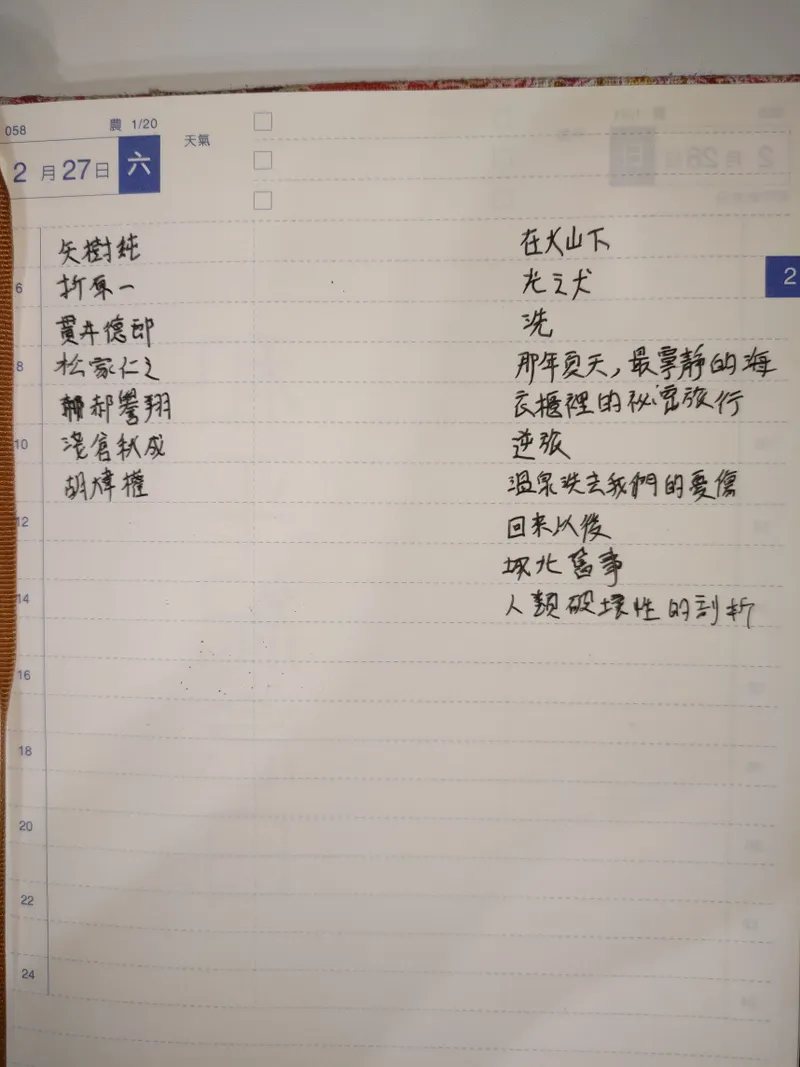 058
農 1/20
天氣
2 月 27 日 六
2
矢樹純
折原一
貫井德郎
松家仁之
郝譽翔
淺倉秋成
胡煒權
在火山下
光之犬
洗
那年夏天,最寧靜的海
衣櫃裡的祕密旅行
逆旅
溫泉洗去我們的憂傷
回來以後
城北舊事
人類破壞性的剖析
6
8
10
12
14
16
18
20
22
24